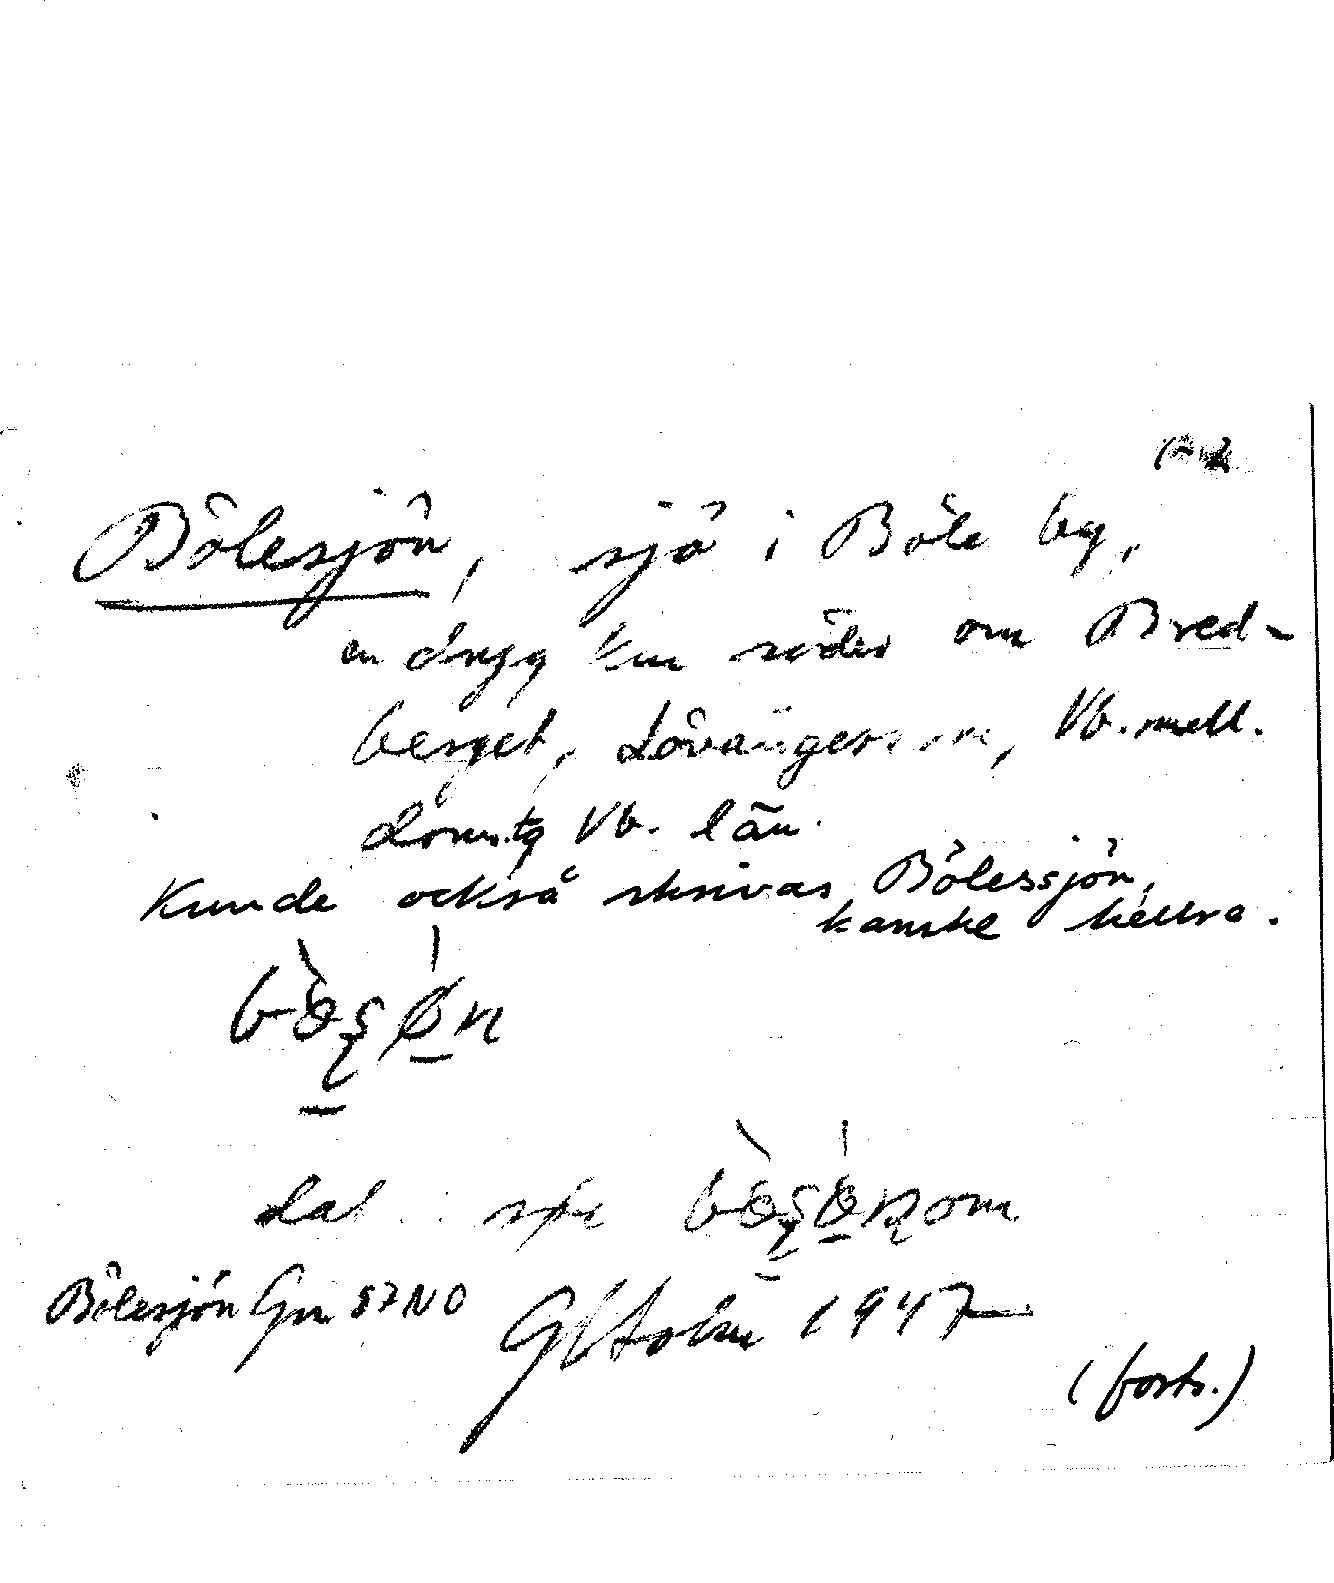 Bölesjön, sjö i Böle by,
en drygt km söder om Bred-
berget, Lövångers sn, Vb. mell.
doms.tg Vb. län.
Kunde också skrivas Bölessjön,
kanske hellre.
dat
Bölesjön Gn 57 NO
1947
(forts.)